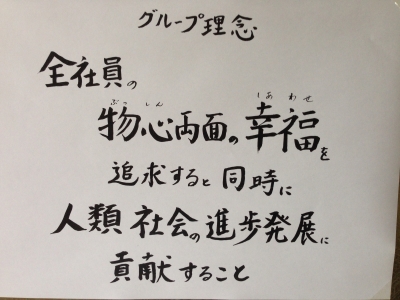 グループ理念
全社員の
ぶっしん しあわせ
物心両面の幸福を
追求すると同時に
人類社会の進歩発展に
貢献すること